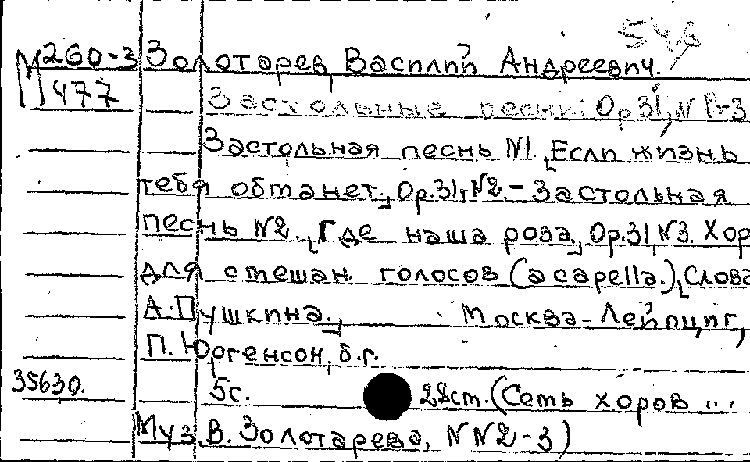 М 260-3 Золотарев, Василий Андреевич. 546
477 Застольные песни: Op.31, N 1-3
Застольная песнь N1 „Если жизнь
тебя обманет„, Op.31, N2 - Застольная
песнь N2. „Где наша роза„, Op.31, N3. Хор
для смешан. голосов (a capella.) [Слова
А. Пушкина.] Москва-Лейпциг,
П. Юргенсон, б.г.
35630. 5с. 22см. (Семь хоров ...
Муз. В. Золотарева, NN2-3)